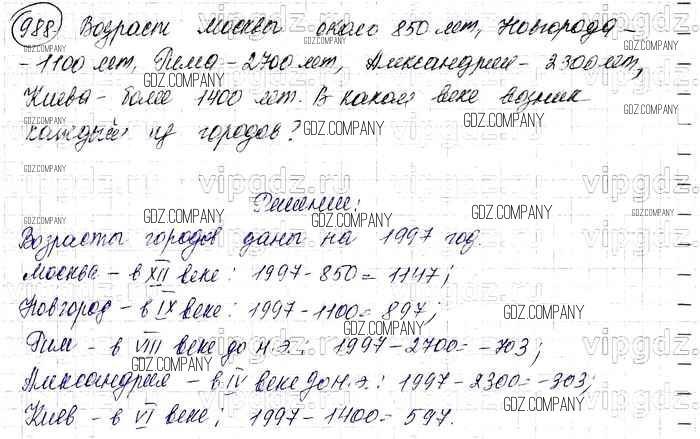 988) Возраст Москвы около 850 лет, Новгорода -
- 1100 лет, Рима - 2700 лет, Александрии - 2300 лет,
Киева - более 1400 лет. В каком веке возник
каждый из городов?
Решение:
Возрасты городов даны на 1997 год.
Москва - в XII веке: 1997 - 850 = 1147;
Новгород - в IX веке: 1997 - 1100 = 897;
Рим - в VIII веке до н.э.: 1997 - 2700 = -703;
Александрия - в IV веке до н.э.: 1997 - 2300 = -303;
Киев - в VI веке; 1997 - 1400 = 597.
GDZ.COMPANY
vipgdz.ru